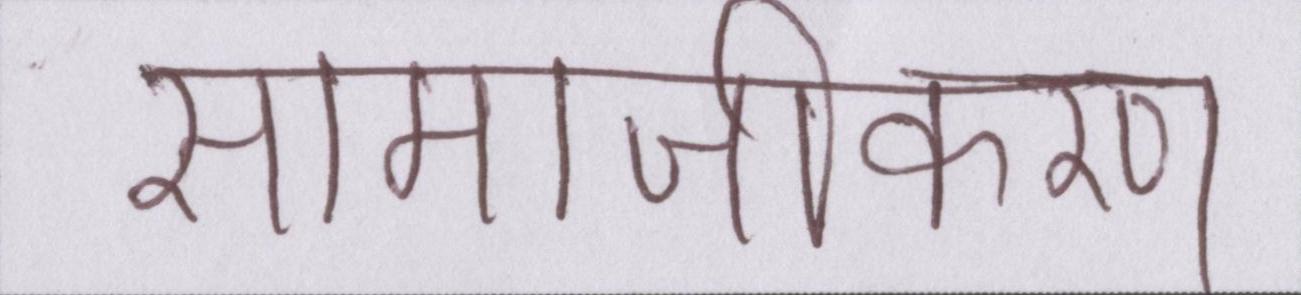 सामाजीकरण